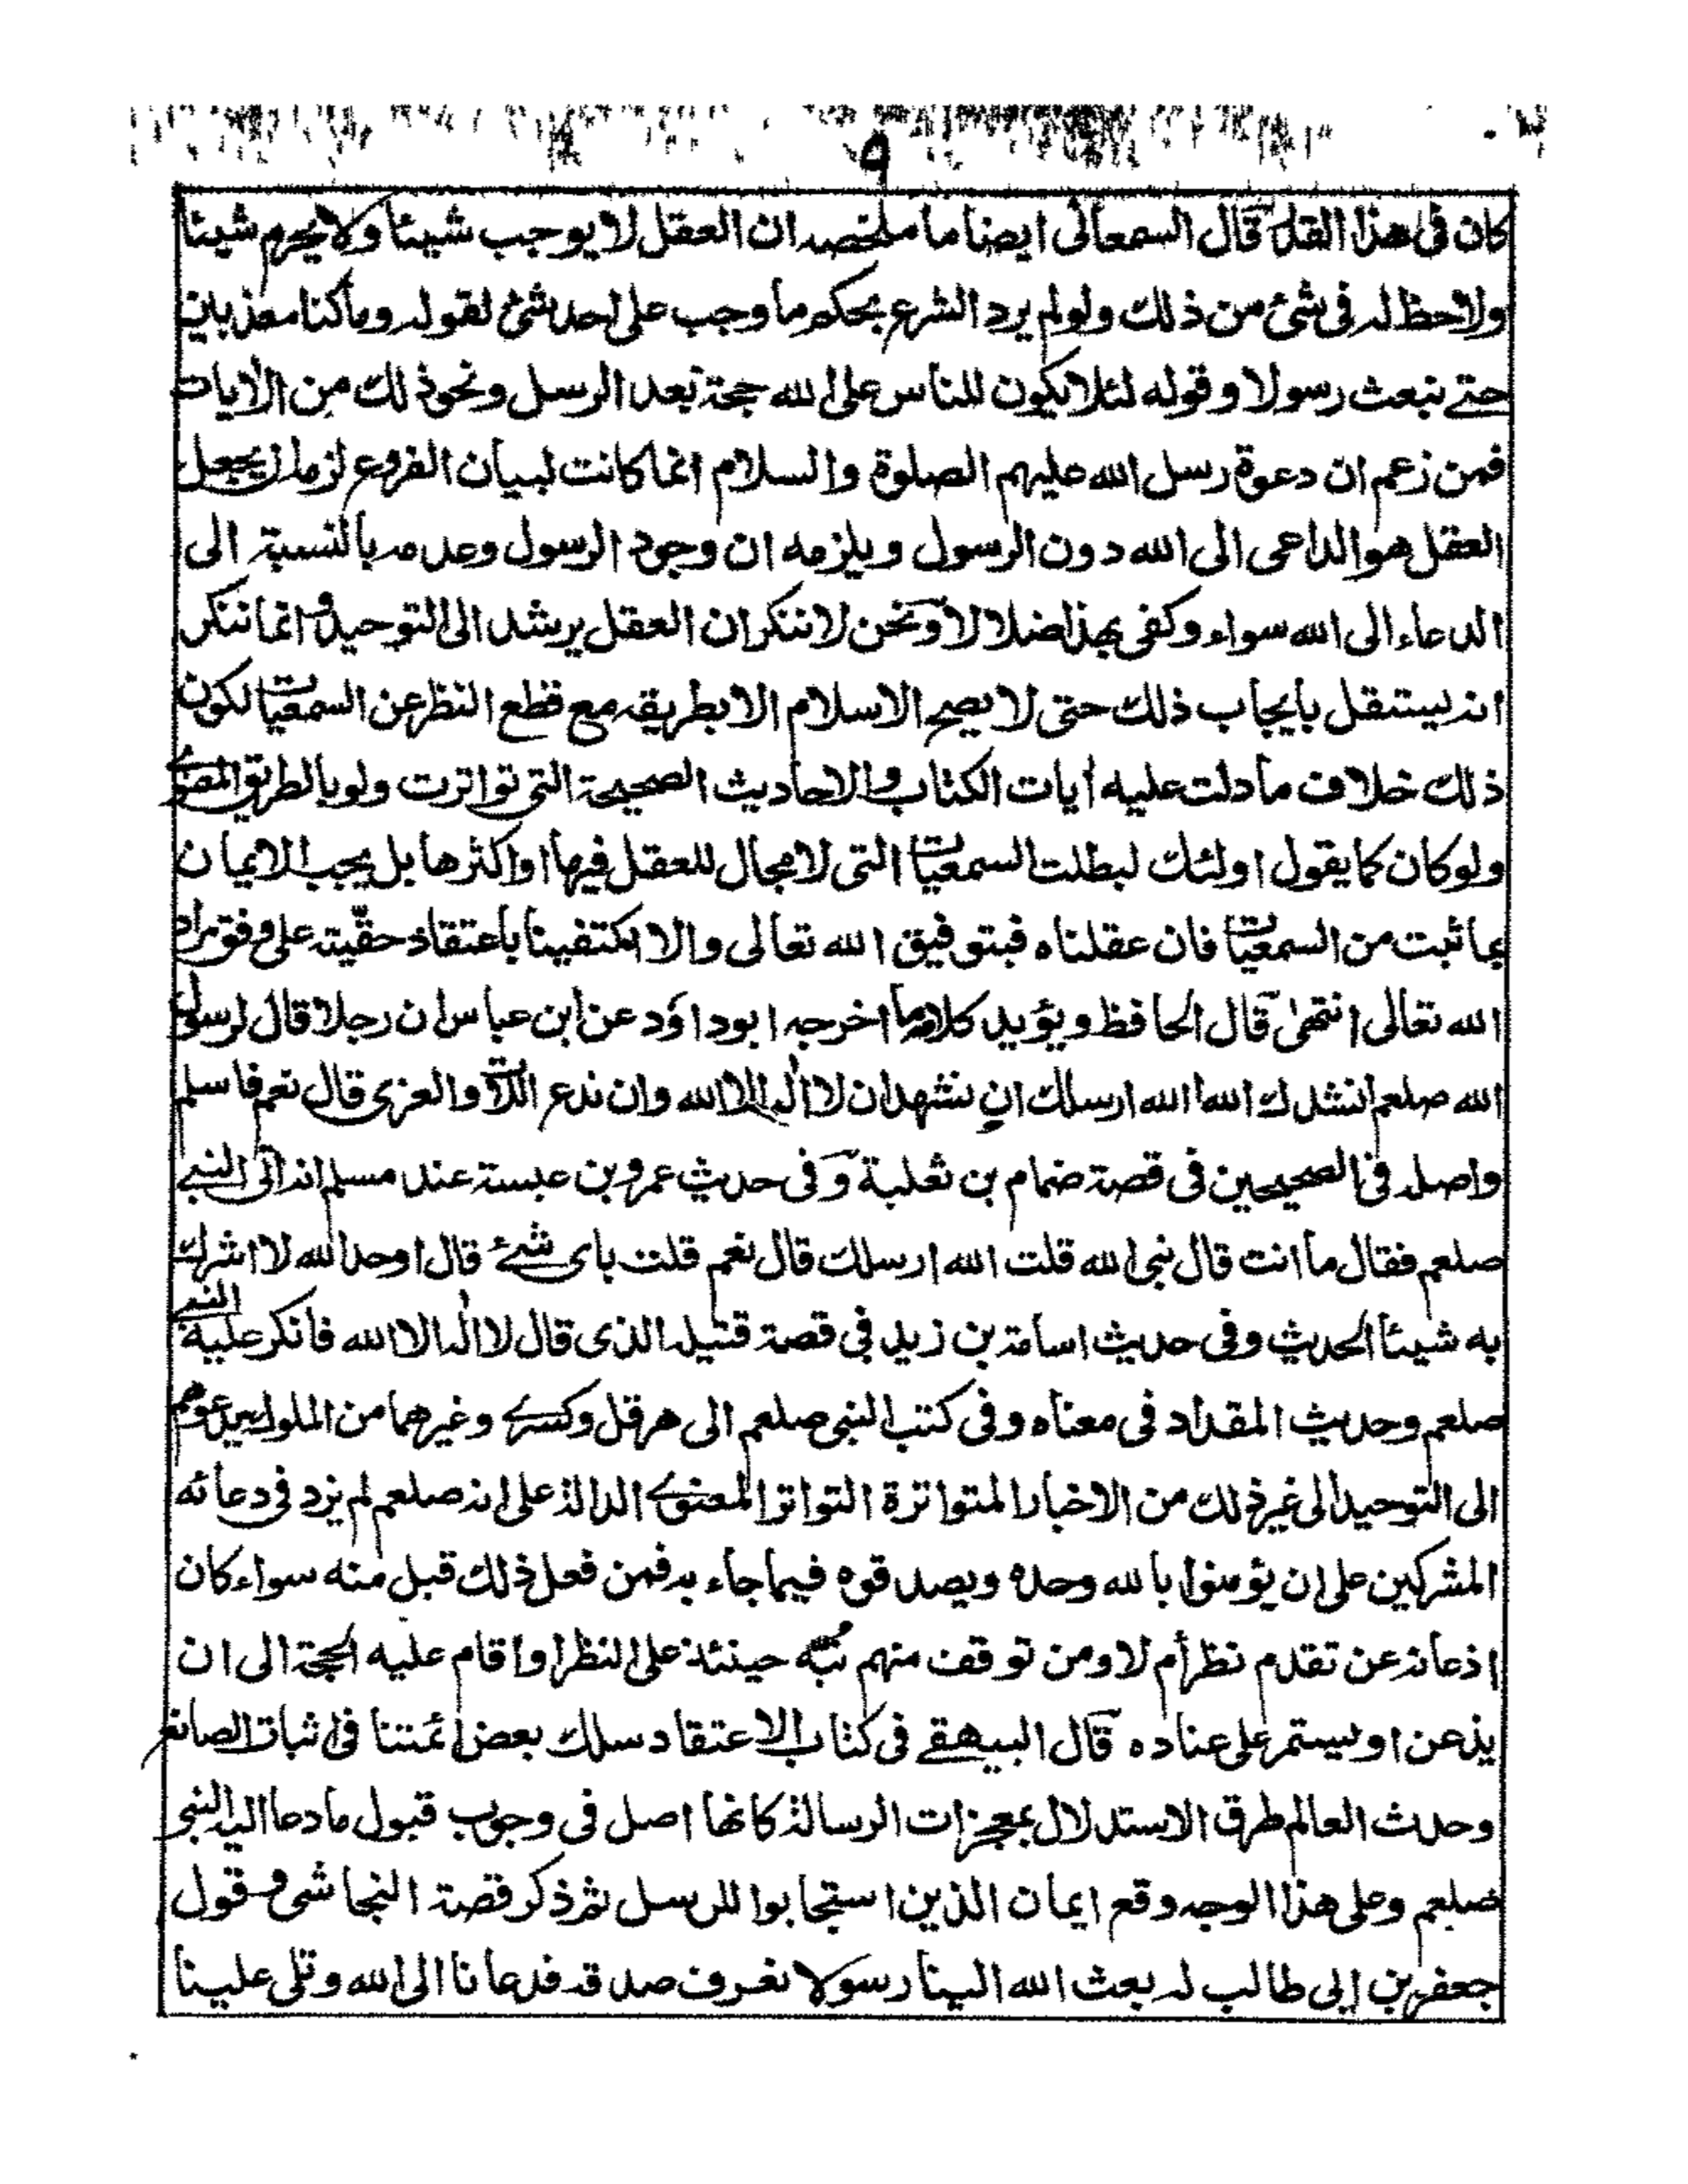 ٩
كان فى هذا القدر قال السمعانى ايضا ما ملخصه ان العقل لا يوجب شيئا ولا يحرم شيئا
ولا حظ له فى شئ من ذلك ولو لم يرد الشرع بحكم ما وجب على احد شئ لقوله وما كنا معذبين
حتے نبعث رسولا وقوله لئلا يكون للناس على الله حجة بعد الرسل ونحو ذلك من الآيات
فمن زعم ان دعوة رسل الله عليهم الصلوة والسلام انما كانت لبيان الفروع لزمه ان يجعل
العقل هو الداعى الى الله دون الرسول ويلزمه ان وجود الرسول وعدمه بالنسبة الى
الدعاء الى الله سواء وكفى بهذا ضلالا ونحن لا ننكر ان العقل يرشد الى التوحيد وانما ننكر
انه يستقل بايجاب ذلك حتى لا يصح الاسلام الا بطريقه مع قطع النظر عن السمعيات لكون
ذلك خلاف ما دلت عليه أيات الكتاب والاحاديث الصحيحة التى تواترت ولو بالطريق المعنوے
ولو كان كما يقول اولئك لبطلت السمعيات التى لا مجال للعقل فيها او اكثرها بل يجب الايمان
بما ثبت من السمعيات فان عقلناه فبتوفيق الله تعالى والا اكتفينا باعتقاد حقّيته على وفق مراد
الله تعالى انتهى قال الحافظ ويؤيد كلامه ما اخرجه ابو داؤد عن ابن عباس ان رجلا قال لرسول
الله صلعم انشدك الله أالله ارسلك ان نشهد ان لا اله الا الله وان ندع اللات والعزى قال نعم فاسلم
واصله فى الصحيحين فى قصة ضمام بن ثعلبة وفى حديث عمرو بن عبسة عند مسلم انه اتى النبے
صلعم فقال ما انت قال نبى الله قلت الله ارسلك قال نعم قلت باى شئے قال اوحد الله لا اشرك
به شيئا الحديث وفى حديث اسامة بن زيد فى قصة قتيله الذى قال لا اله الا الله فانكر عليه النبے
صلعم وحديث المقداد فى معناه وفى كتب النبى صلعم الى هرقل وكسرے وغيرهما من الملوك يدعوهم
الى التوحيد الى غير ذلك من الاخبار المتواترة التواتر المعنوے الدالة على انه صلعم لم يزد فى دعائه
المشركين على ان يؤمنوا بالله وحده ويصدقوه فيما جاء به فمن فعل ذلك قبل منه سواء كان
اذعانه عن تقدم نظر أم لا ومن توقف منهم نُبِّه حينئذ على النظر او اقام عليه الحجة الى ان
يذعن او يستمر على عناده قال البيهقے فى كتاب الاعتقاد سلك بعض ائمتنا فى اثبات الصانع
وحدث العالم طرق الاستدلال بمعجزات الرسالة كانها اصل فى وجوب قبول ما دعا اليه النبى
صلعم وعلى هذا الوجه وقع ايمان الذين استجابوا للرسل ثم ذكر قصة النجاشى وقول
جعفر بن ابى طالب له بعث الله الينا رسولا نعرف صدقه فدعانا الى الله وتلى علينا